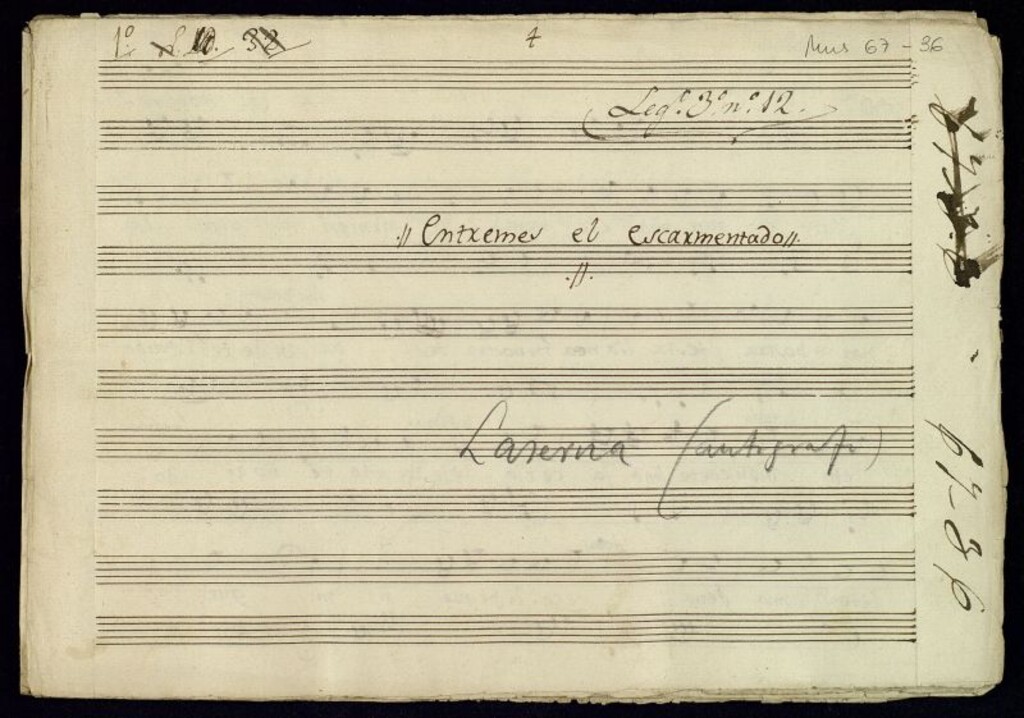 1º
4
Mus 67-36
Legº. 3º. nº. 12.
Entremes el escarmentado
Laserna (autógrafo)
67-36